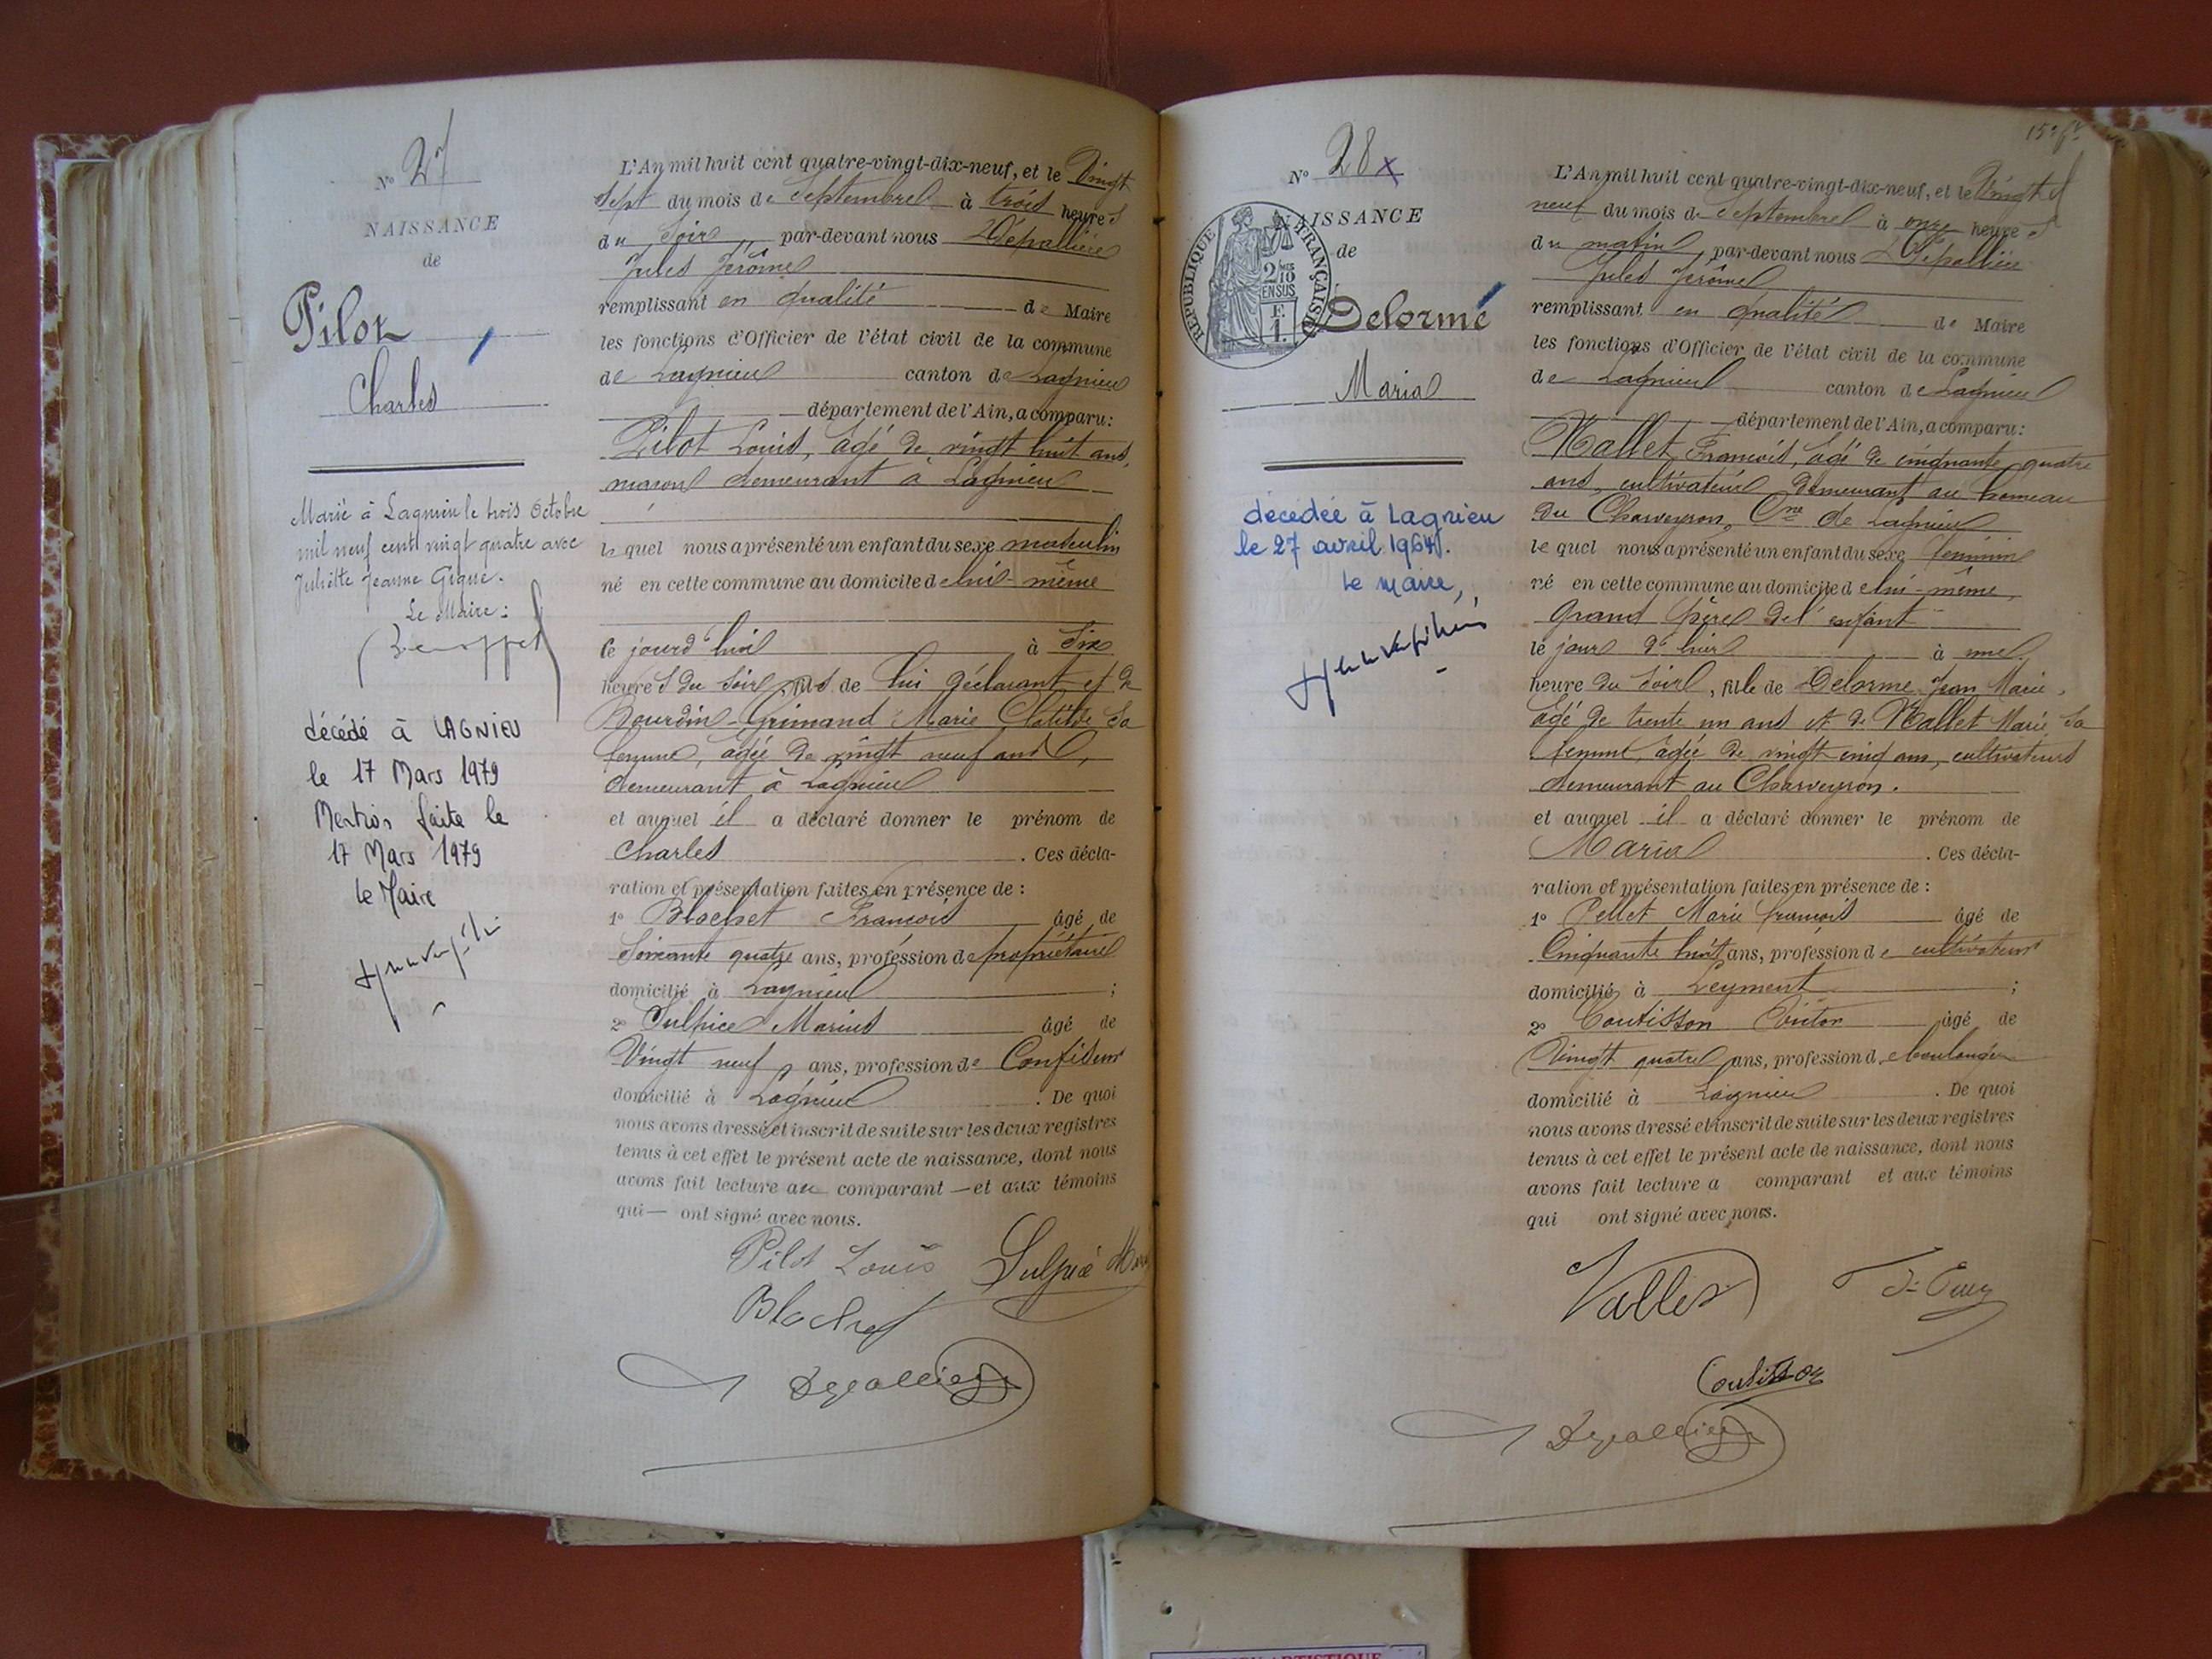 N° 27
NAISSANCE
de
Pilot
Charles
Marié à Lagnieu le trois Octobre
mil neuf cent vingt quatre avec
Juliette Jeanne Gigue.
Le Maire :
décédé à LAGNIEU
le 17 Mars 1979
Mention faite le
17 Mars 1979
le Maire
L'An mil huit cent quatre-vingt-dix-neuf, et le Vingt
Sept du mois de Septembre à trois heures
du Soir par-devant nous Dépallière
Jules Jérôme
remplissant en qualité de Maire
les fonctions d'Officier de l'état civil de la commune
de Lagnieu canton de Lagnieu
département de l'Ain, a comparu :
Pilot Louis, âgé de vingt huit ans,
maçon demeurant à Lagnieu
le quel nous a présenté un enfant du sexe masculin
né en cette commune au domicile de lui-même
ce jourd'hui à
heures du soir, fils de lui déclarant et de
Bourdin-Grimaud Marie Clotilde sa
femme, âgée de vingt neuf ans,
demeurant à Lagnieu
et auquel il a déclaré donner le prénom de
Charles . Ces décla-
ration et présentation faites en présence de :
1° Blachet François âgé de
Soixante quatre ans, profession de propriétaire
domicilié à Lagnieu ;
2° Sulpice Marius âgé de
Vingt neuf ans, profession de Confiseur
domicilié à Lagnieu . De quoi
nous avons dressé et inscrit de suite sur les deux registres
tenus à cet effet le présent acte de naissance, dont nous
avons fait lecture au comparant — et aux témoins
qui — ont signé avec nous.
Pilot Louis Sulpice
Blachet
Depallière
15e ft
N° 28 x
NAISSANCE
de
RÉPUBLIQUE FRANÇAISE
2/10 EN SUS
F. 1.
Delorme
Maria
décédée à Lagnieu
le 27 avril 1964.
Le Maire,
L'An mil huit cent quatre-vingt-dix-neuf, et le Vingt
neuf du mois de Septembre à onze heures
du matin par-devant nous Dépallière
Jules Jérôme
remplissant en qualité de Maire
les fonctions d'Officier de l'état civil de la commune
de Lagnieu canton de Lagnieu
département de l'Ain, a comparu :
Vallet François, âgé de cinquante quatre
ans, cultivateur demeurant au hameau
du Charveyron, Cne de Lagnieu
le quel nous a présenté un enfant du sexe féminin
né en cette commune au domicile de lui-même,
grand père de l'enfant
le jour d'hier à une
heure du soir, fille de Delorme Jean Marie,
âgé de trente un ans et de Vallet Marie sa
femme, âgée de vingt cinq ans, cultivateurs
demeurant au Charveyron.
et auquel il a déclaré donner le prénom de
Maria . Ces décla-
ration et présentation faites en présence de :
1° Pellet Marie François âgé de
Cinquante huit ans, profession de cultivateur
domicilié à Leyment ;
2° Coutisson Victor âgé de
Vingt quatre ans, profession de boulanger
domicilié à Lagnieu . De quoi
nous avons dressé et inscrit de suite sur les deux registres
tenus à cet effet le présent acte de naissance, dont nous
avons fait lecture a comparant et aux témoins
qui ont signé avec nous.
Vallet
Coutisson
Depallière